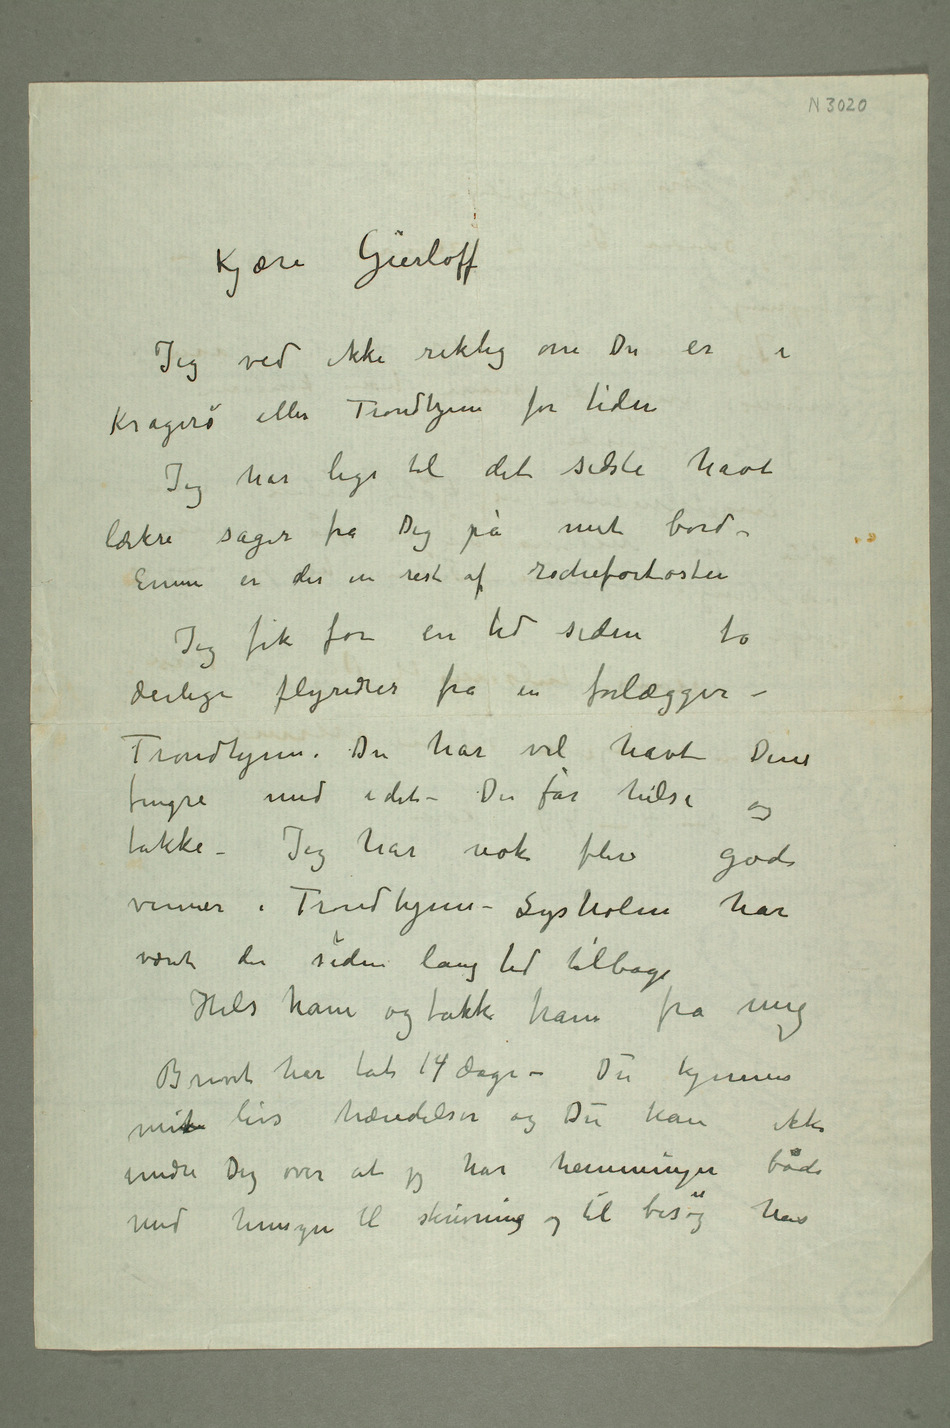 N 3020
Kjære Gierløff
Jeg ved ikke riktig om Du er i
Kragerö eller Trondhjem for tiden
Jeg har lige til det sidste havt
lækre sager fra Dig på mit bord –
Ennu er der en rest af rochefortosten
Jeg fik for en tid siden to
deilige flyndrer fra en forlægger –
Trondhjem. Du har vel havt Dine
fingre med i det – Du får hilse og
takke – Jeg har nok flere gode
venner i Trondhjem – Lysholm har
vært der siden lang tid tilbage
Hils ham og takk ham fra mig
Brevet har tat 14 dage – Du kjenner
mit livs hændelser og Du kan ikke
undre Dig over at jeg har hemninger både
med hensyn til skrivning og til besøg hos